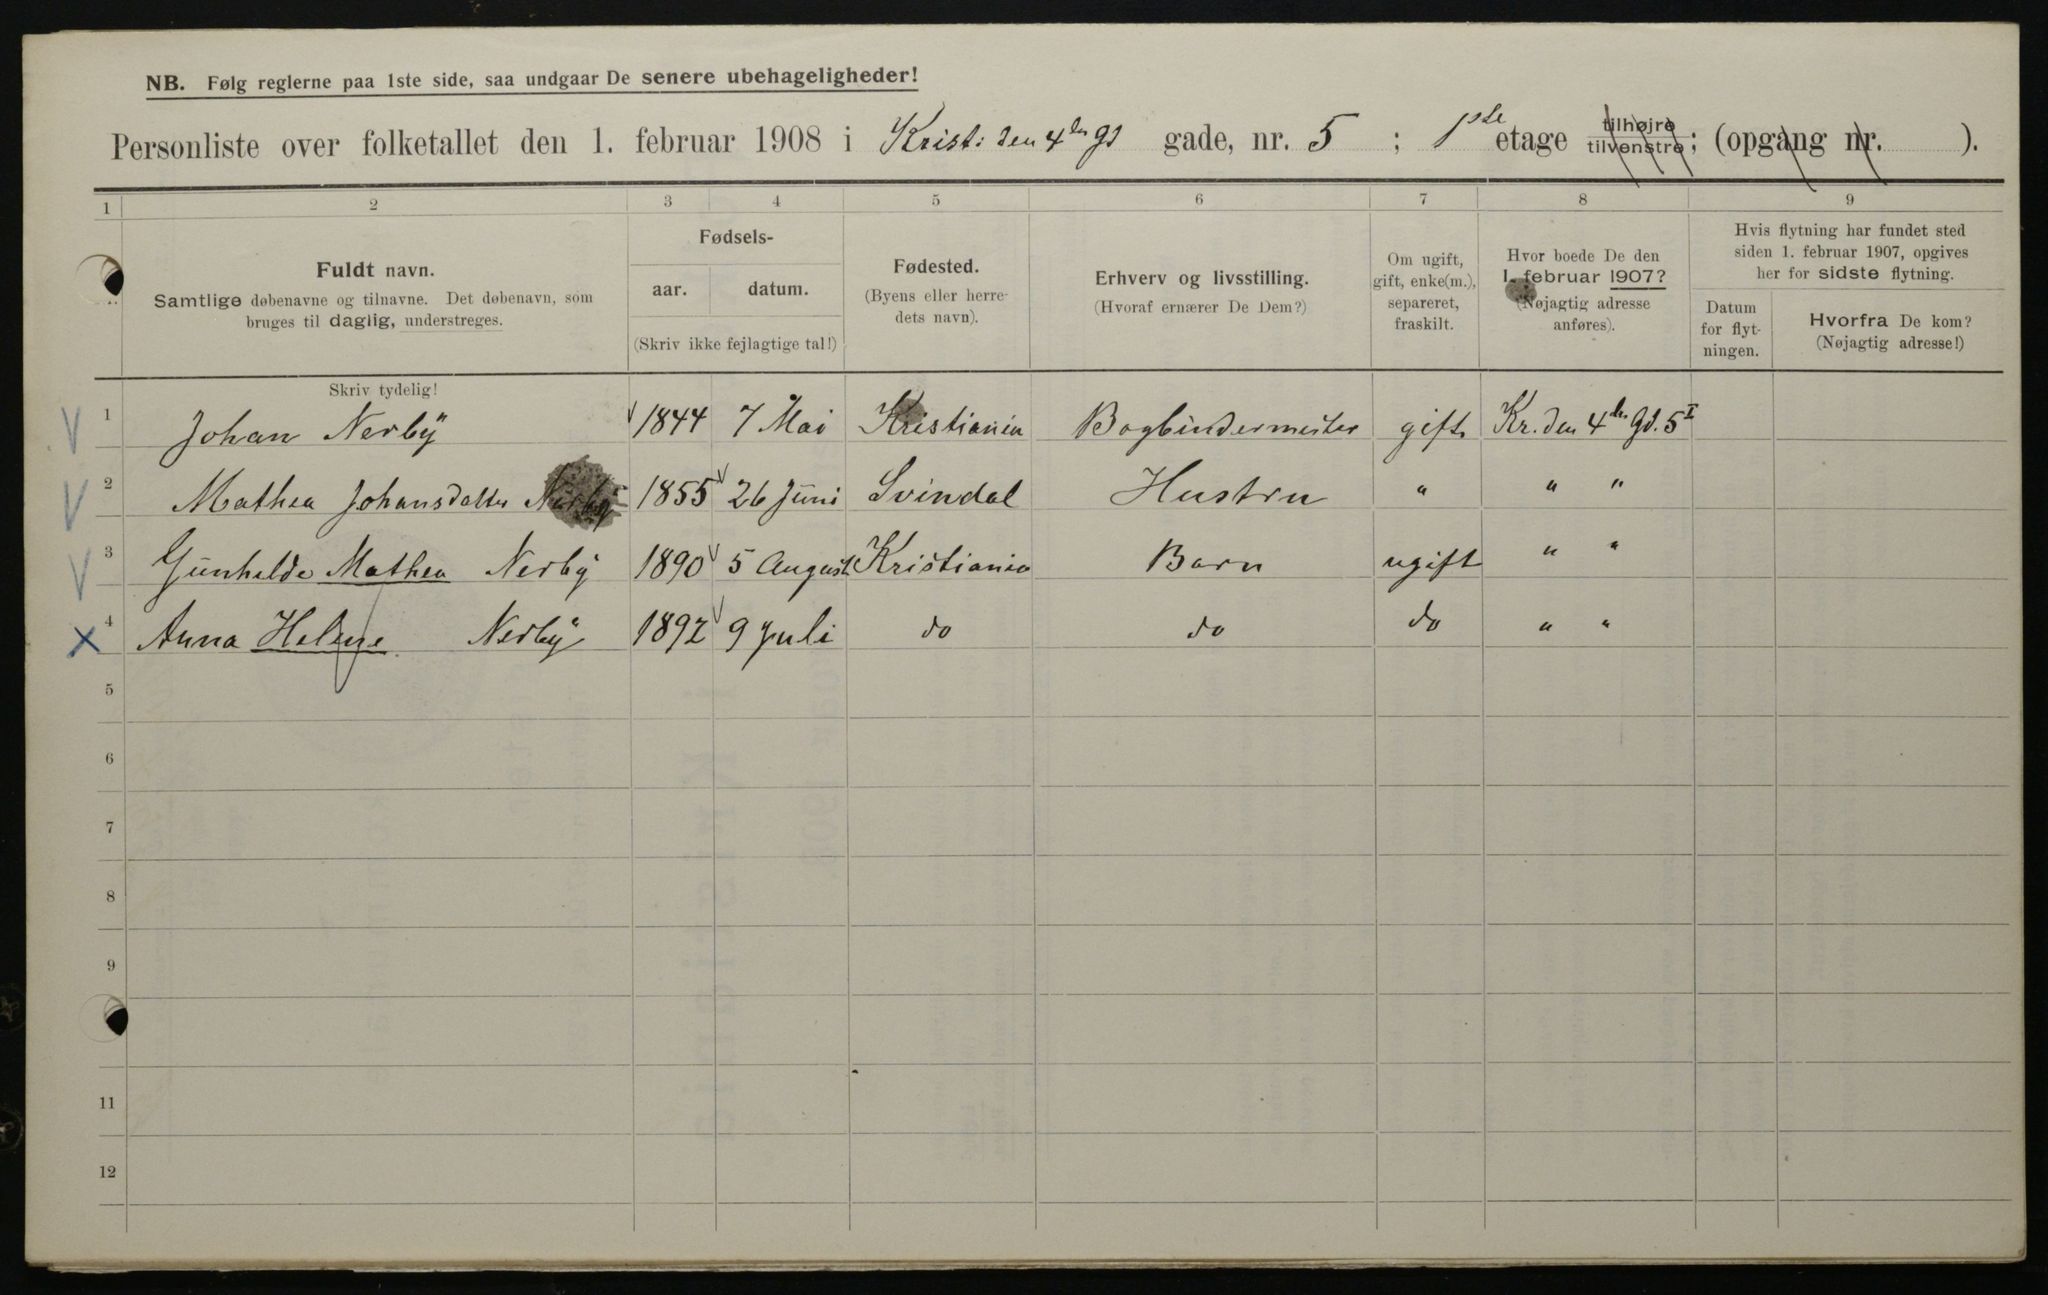 NB. Følg reglerne paa 1ste side, saa undgaar De senere ubehageligheder!
Personliste over folketallet den 1. februar 1908 i Krist: den 4des Gd gade, nr. 5 ; 1ste etage tilhøjre tilvenstre; (opgang nr. ).
1 2 3 4 5 6 7 8 9
Fuldt navn.
Samtlige døbenavne og tilnavne. Det døbenavn, som
bruges til daglig, understreges.
Skriv tydelig!
Fødsels-
aar. datum.
(Skriv ikke fejlagtige tal!)
Fødested.
(Byens eller herre-
dets navn).
Erhverv og livsstilling.
(Hvoraf ernærer De Dem?)
Om ugift,
gift, enke(m.),
separeret,
fraskilt.
Hvor boede De den
1. februar 1907?
(Nøjagtig adresse
anføres).
Hvis flytning har fundet sted
siden 1. februar 1907, opgives
her for sidste flytning.
Datum
for flyt-
ningen.
Hvorfra De kom?
(Nøjagtig adresse!)
1 Johan Nerbÿ 1844 7 Mai Kristiania Bogbindermester gift Kr. den 4des Gd. 5 I
2 Mathea Johansdatter Nerbÿ 1855 26 Juni Svindal Hustru " " "
3 Gunhilde Mathea Nerbÿ 1890 5 August Kristiania Barn ugift " "
4 Anna Helene Nerbÿ 1892 9 Juli do do do " "
5
6
7
8
9
11
12